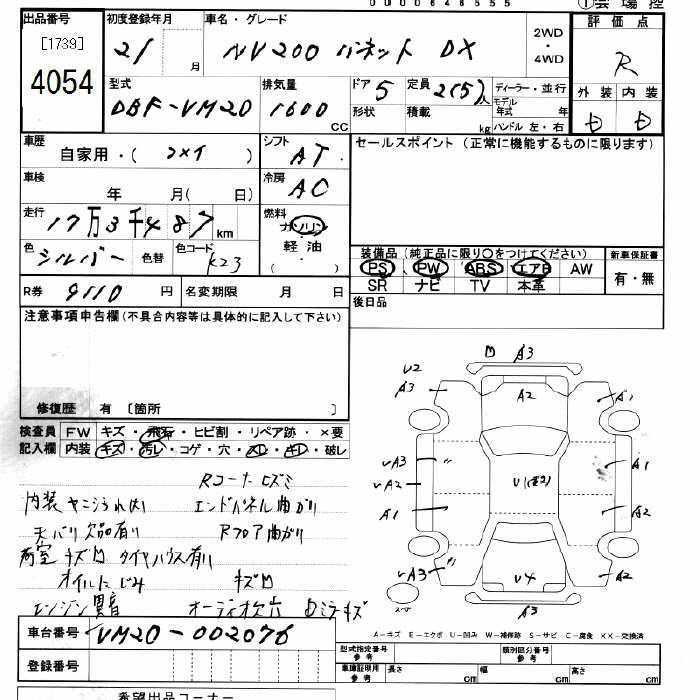 0000646555 ①会場控
出品番号 初度登録年月 車名・グレード 2WD・4WD 評価点
[1739] 21 月 NV200 バネット DX R
4054
型式 排気量 ドア 定員 ディーラー・並行 外装 内装
DBF-VM20 1600 CC 5 2(5)人 モデル年式 年 D D
形状 積載 kg ハンドル 左・右
車歴 シフト セールスポイント (正常に機能するものに限ります)
自家用・( コメイ ) AT
車検 年 月( 日) 冷房 AC
走行 17万3千487 km 燃料 ガソリン
軽油
( )
色 シルバー 色替 色コード K23
装備品 (純正品に限り○をつけてください) 新車保証書
PS PW ABS エアB AW 有・無
SR ナビ TV 本革
R券 9110 円 名変期限 月 日 後日品
注意事項申告欄 (不具合内容等は具体的に記入して下さい)
修復歴 有 〔箇所 〕
検査員 FW キズ・飛石・ヒビ割・リペア跡・×要
記入欄 内装 キズ・汚レ・コゲ・穴・
・破レ
Rコーナーヒズミ
内装 ヤニ
エンドパネル曲がり
天バリ 欠品有り Rフロア曲がり
荷室 キズ凹 タイヤハウス有り
オイルにじみ キズ凹
エンジン異音 オーディオ欠穴
ミラーキズ
A3
U2
A3 A2 A1
UA3 A1
UA2
A1 A2
UA3 U4 A2
A3
A-キズ E-エクボ U-凹み W-補修跡 S-サビ C-腐食 XX-交換済
車台番号 VM20-002076
登録番号
型式指定番号 参考 類別区分番号 参考
車庫証明用 参考 長さ cm 幅 cm 高さ cm
希望出品コーナー